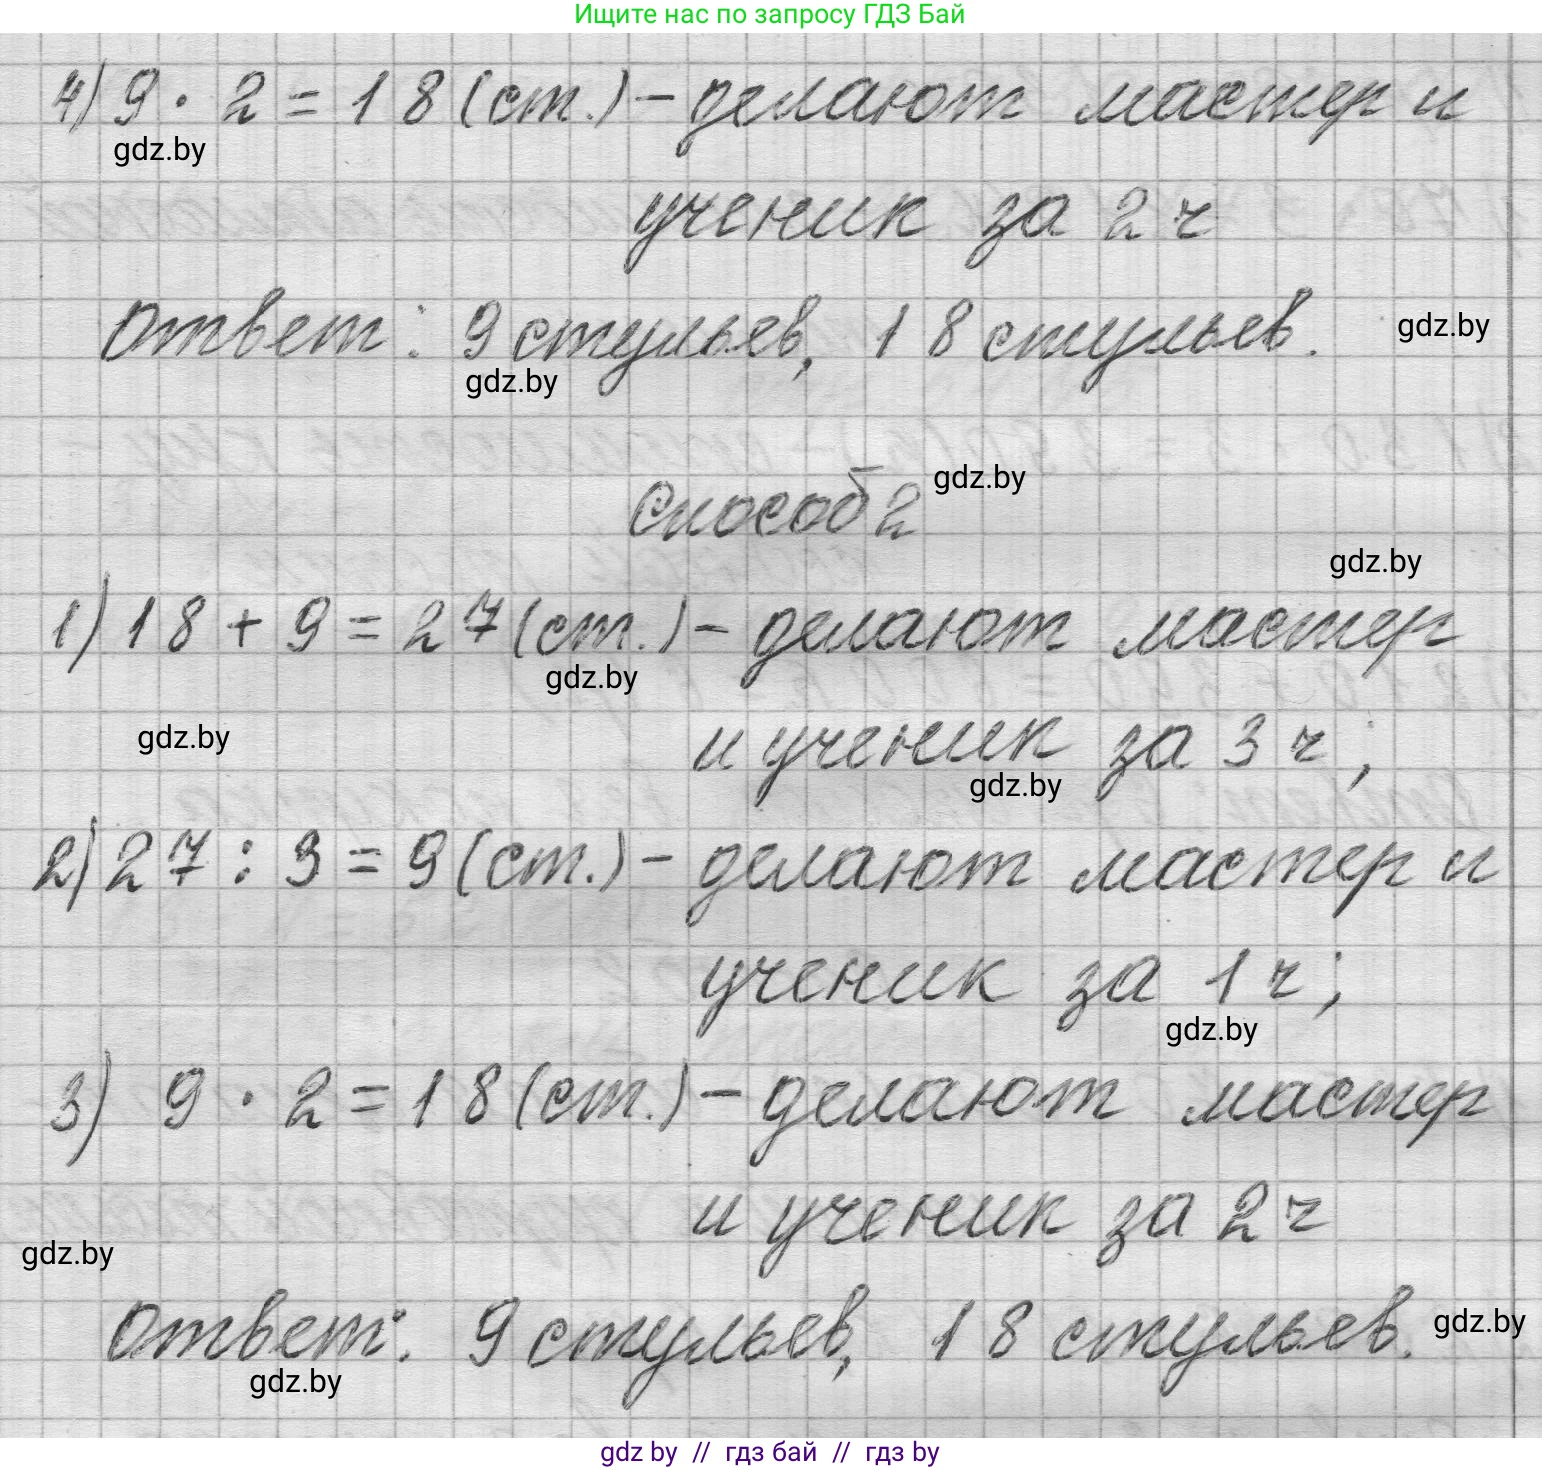 Ищите нас по запросу ГДЗ Бай
4) 9 · 2 = 18 (ст.) – делают мастер и
gdz.by
ученик за 2 ч
Ответ: 9 стульев, 18 стульев.
gdz.by
gdz.by
Способ 2
gdz.by
gdz.by
1) 18 + 9 = 27 (ст.) – делают мастер
gdz.by
и ученик за 3 ч;
gdz.by
gdz.by
2) 27 : 3 = 9 (ст.) – делают мастер и
ученик за 1 ч;
gdz.by
3) 9 · 2 = 18 (ст.) – делают мастер
и ученик за 2 ч
gdz.by
Ответ: 9 стульев, 18 стульев.
gdz.by
gdz.by
gdz by // гдз бай // гдз by